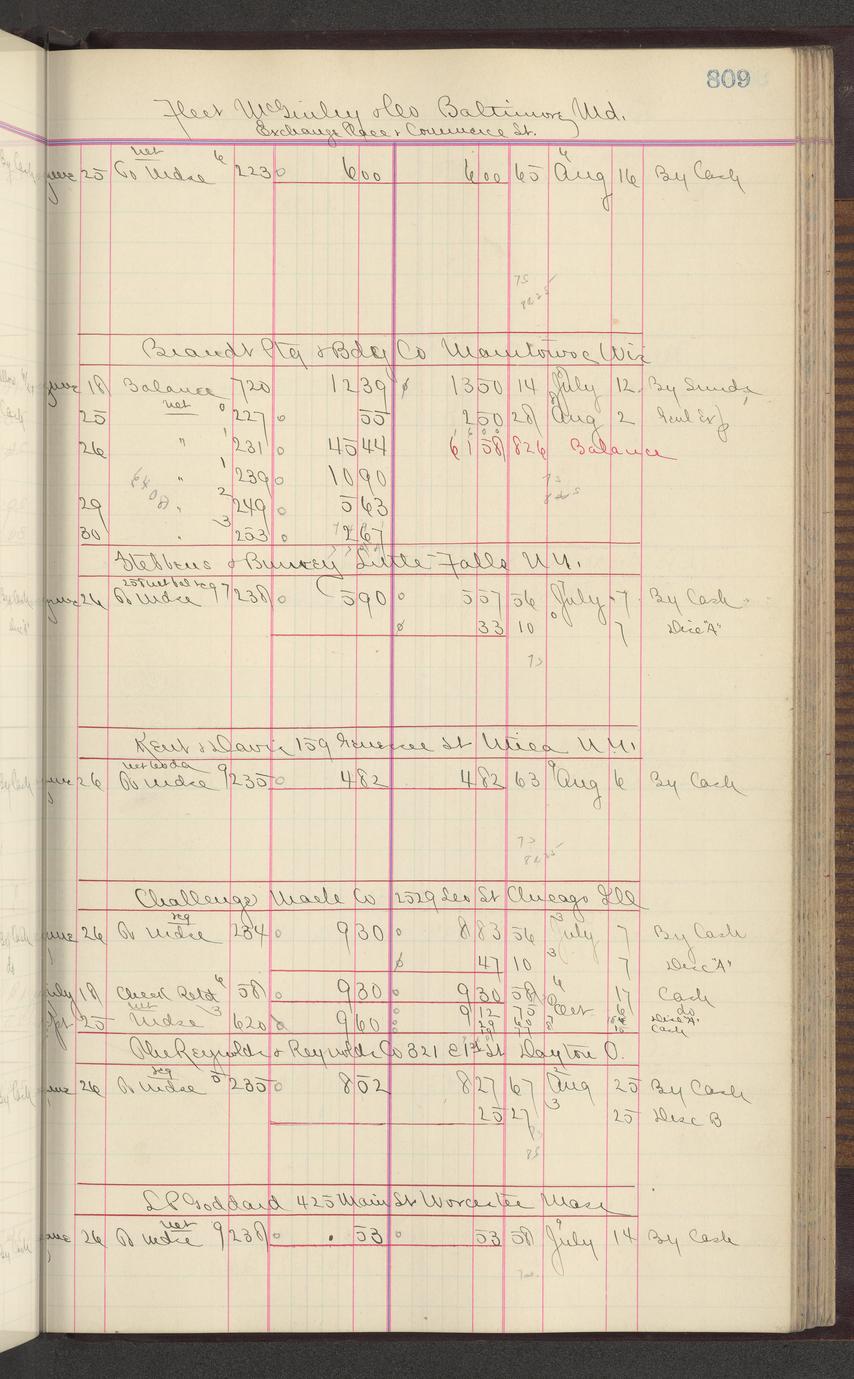 809
Fleet McGinley & Co Baltimore, Md.
Exchange Place & Commerce St.
net
June 25 To Mdse 6 223 6 00 6 00 65 4 Aug 16 By Cash
75
Brandt Ptg & Bdg Co Manitowoc Wis
June 18 Balance 720 12 39 13 50 14 July 12 By Sunds
25 net 0 227 55 2 50 28 Aug 2
26 " 1 231 45 44 61 58 826 Balance
" 1 239 10 90
29 " 2 249 5 63
30 " 3 253 2 67
Stebbens & Little Falls N.Y.
June 26 To Mdse 97 238 5 90 5 57 56 July 7 By Cash
33 10 7 Disc "A"
75
Kent & Davis 159 Genesee St Utica N.Y.
June 26 To Mdse 9 235 4 82 4 82 63 9 Aug 6 By Cash
75
Challenge Mach Co 2529 Leo St Chicago Ill
reg
June 26 To Mdse 234 9 30 8 83 56 3 July 7 By Cash
47 10 3 7 Disc "A"
July 18 Check Retd 6 58 9 30 9 30 58 4 17 Cash
net
Sept 25 Mdse 3 620 9 60 9 12 75 Oct 6 do
Disc "A"
Cash
The Reynolds & Reynolds Co 321 E 1st St Dayton O.
reg
June 26 To Mdse 5 235 8 52 8 27 67 2 Aug 25 By Cash
25 27 3 25 Disc B
85
L P Goddard 425 Main St Worcester Mass
net
June 26 To Mdse 9 238 53 53 58 9 July 14 By Cash